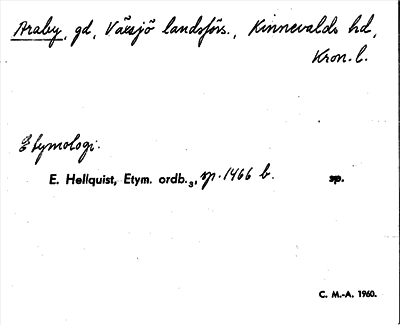 Araby, gd, Växjö landsförs., Kinnevalds hd,
Kron. l.
Etymologi.
E. Hellquist, Etym. ordb.3, sp. 1466 b. sp.
C. M.-A. 1960.